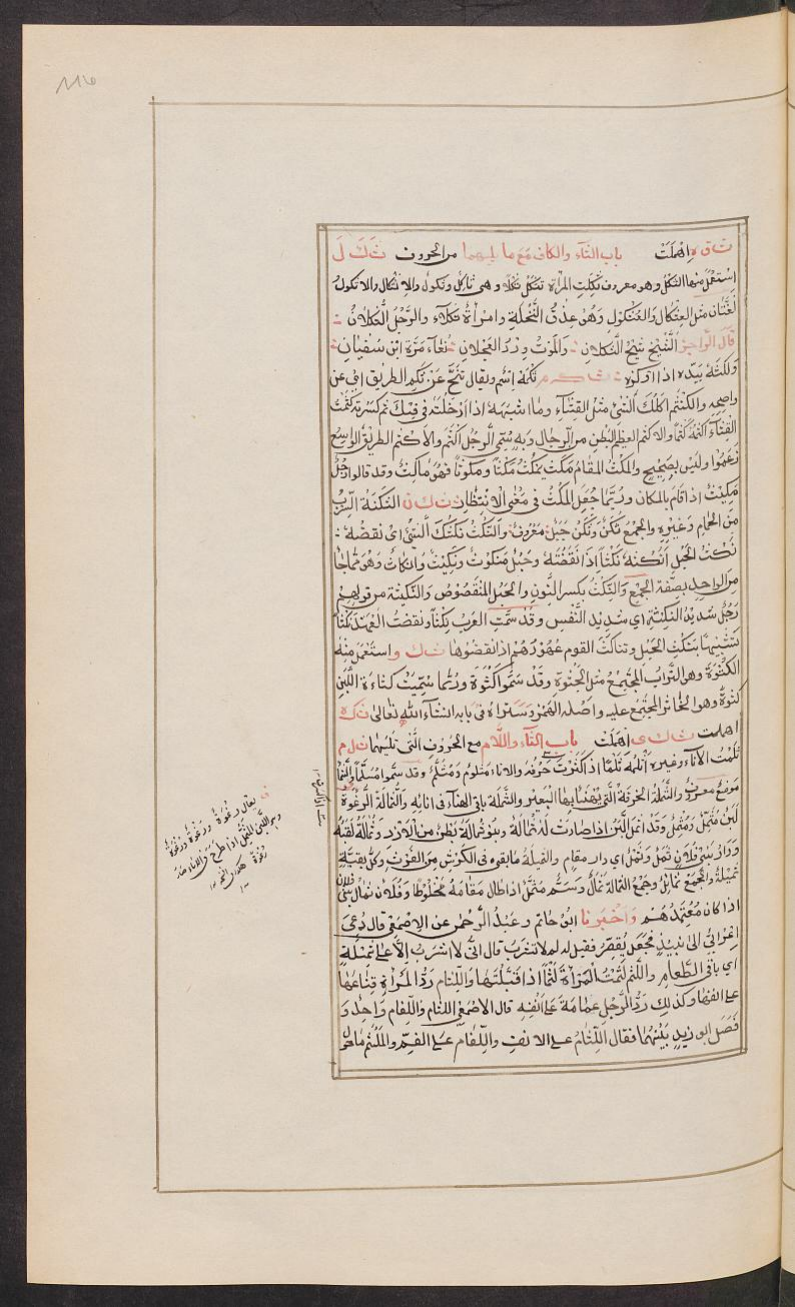 ث ق ه اهملت باب الثاء والكاف مع ما يليهما من الحروف ث ك ل
استعمل منها الثكل وهو معروف ثكلت المرأة تثكل ثكلا وهي ثاكل وثكول والاثكال والاثكول
لغتان مثل العثكال والعثكول وهو عذق النخلة وامرأة ثكلاء والرجل الثكلان
قال الراجز الشيخ شيخ الثكلان والموت ورد العجلان نعاء مرة ابن سفيان
ث ك م ثكمة اسم ويقال تنح عن ثكم الطريق اي عن
واضحه والكثم اكلك الشيء مثل القثاء وما اشبهه اذا ادخلته في فيك ثم كسرته كثمت
القثاء اكثمه كثما والاكثم العظيم البطن من الرجال وبه سمي الرجل اكثم والاكثم الطريق الواسع
زعموا وليس بصحيح والمكث المقام مكث يمكث مكثا ومكوثا فهو ماكث وقد قالوا رجل
مكيث اذا قام بالمكان وربما جعل المكث في معنى الانتظار ث ك ن الثكنة السرب
من الحمام وغيره والجمع ثكن وثكن جبل معروف والنكث نكثك الشيء اي نقضه
نكثت الحبل انكثه نكثا اذا نقضته وحبل منكوث ونكيث وانكاث وهو مما جا
من الواحد بصفة الجمع والنكث بكسر النون والحبل المنقوض والنكيثة من قولهم
رجل شديد النكيثة اي شديد النفس وقد سمت العرب نكثا ونقضت العهد نكثا
تشبيها بنكث الحبل وتناكث القوم عهودهم اذا نقضوها ث ك و استعمل منه
الكثوة وهو التراب المجتمع مثل الجثوة وقد سموا كثوة وربما سميت كثاءة اللبن
كثوة وهو الخاثر المجتمع عليه واصله الهمز وستراه في بابه انشاء الله تعالى ث ك ه
اهملت ث ك ى اهملت باب الثاء واللام مع الحروف التي تليهما ث ل م
ثلمت الاناء وغيره اثلمه ثلما اذا كسرت حرفه والاناء مثلوم ومثلم وقد سموا مسلما والثلما
موضع معروف والثملة الخرقة التي يهنا بها البعير والثملة باقي الهناء في انائه والثمالة الرغوة
لبن مثمل ومثمل وقد اثمل اللبن اذا صارت له ثمالة وبنو ثمالة بطن من الازد وثمالة لقبه
ودار بني فلان ثمل وثمل اي دار مقام والثميلة ما بقي في الكرش من الفرث وكل بقية
ثميلة والجمع ثمائل وجمع الثمالة ثمال وسم مثمل اذا طال مقامه مخلوطا وفلان ثمال بني فلان
اذا كان معتمدهم واخبرنا ابو حاتم وعبد الرحمن عن الاصمعي قال دعي
اعرابي الى نبيذ فجعل يقصر فقيل له لم لا تشرب قال اني لا اشرب الا على ثميلة
اي باقي الطعام واللثم لثمت المرأة لثما اذا قبلتها واللثام رد المرأة قناعها
على انفها وكذلك رد الرجل عمامة على انفه قال الاصمعي اللثام واللفام واحد و
فصل ابو زيد بينهما فقال اللثام على الانف واللفام على الفم والملثم ما حول
يقال رغوة ورغوة ورغوة